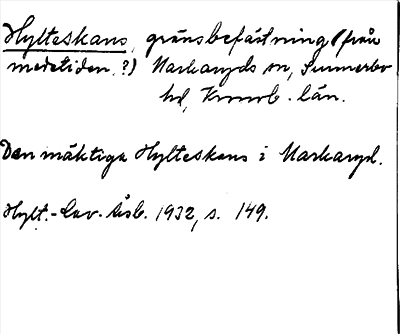 Hylteskans, gränsbefästning (från
medeltiden ?) Markaryds sn, Sunnerbo
hd, Kronob. län.
Den mäktiga Hylteskans i Markaryd.
Hylt.-Cav. Åsb. 1932, s. 149.